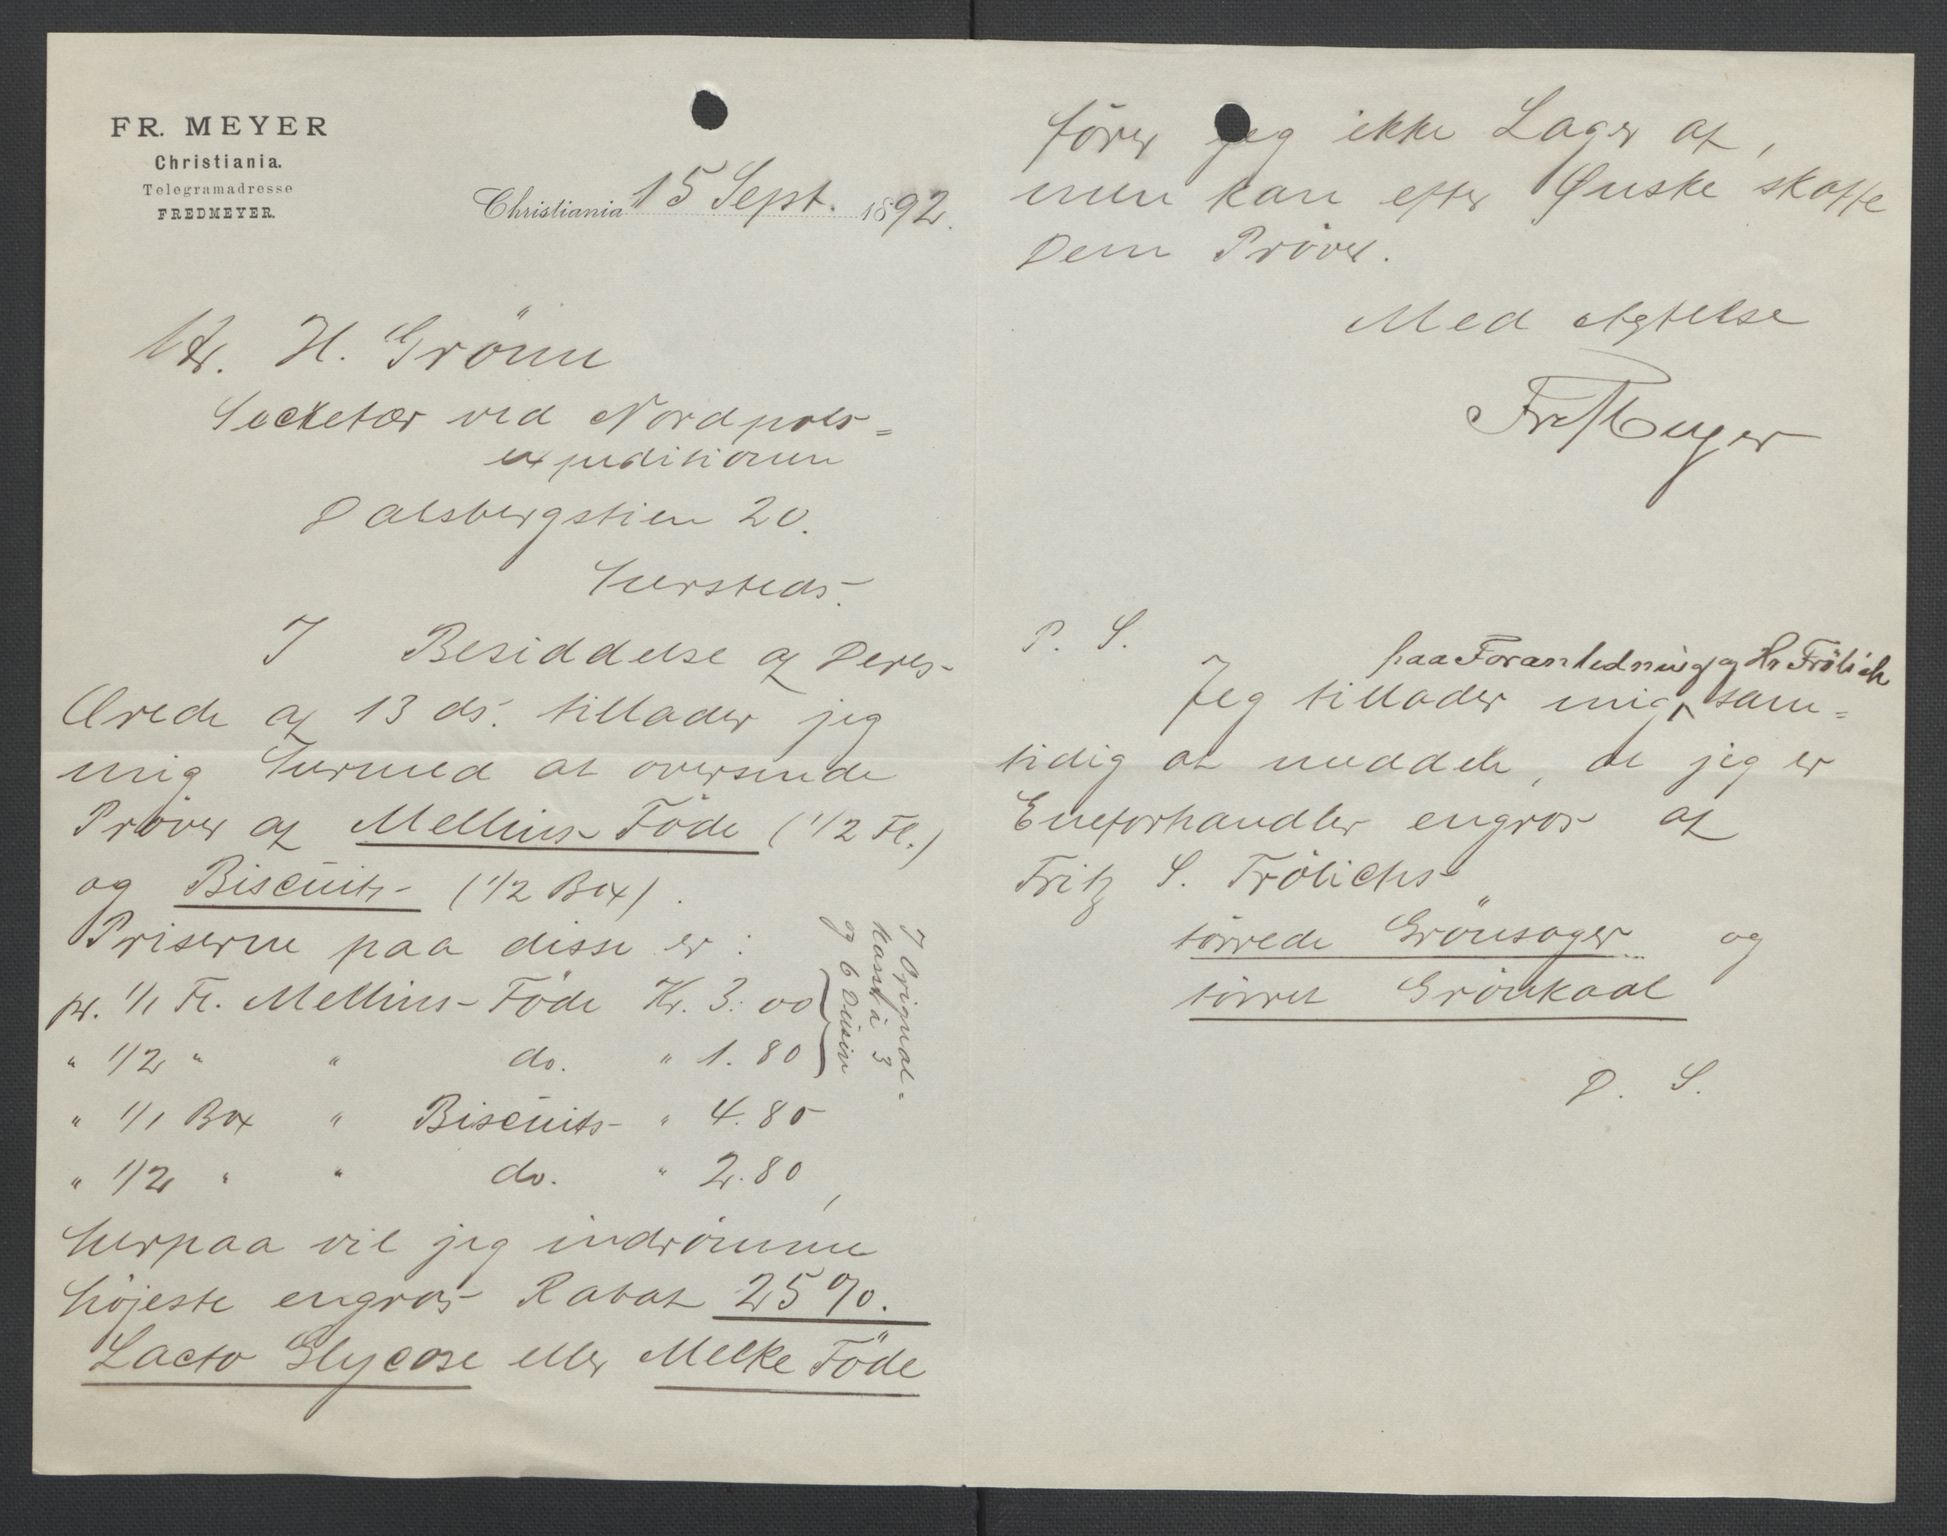 FR. MEYER
Christiania.
Telegramadresse
FREDMEYER.
Christiania 15 Sept. 1892.
Hr. H. Grönn
Seckretær ved Nordpols=
expeditionen
Dalsbergstien 20.
Hersteds.
I Besiddelse af Deres
Ærede af 13 ds. tillader jeg
mig hermed at oversende
Pröver af Mellins Föde (1/2 Fl.)
og Biscuits (1/2 Box).
Priserne paa disse er:
pr. 1/1 Fl. Mellins Föde Kr. 3.00
" 1/2 " " do. " 1.80
" 1/1 Box " Biscuits " 4.80
" 1/2 " " do. " 2.80,
I Original=
kasse à 3
og 6 Dusin
herpaa vil jeg indrömme
höjeste engros Rabat 25%.
Lacto Glycose eller Melke Föde
förer jeg ikke Lager af,
men kan efter Ønske skaffe
Dem Pröver.
Med Agtelse
Fr Meyer
P. S.
paa Foranledning af Hr Frölich
Jeg tillader mig sam=
tidig at meddele, at jeg er
Eneforhandler engros af
Fritz S. Frölichs
törrede Grönsager og
törret Grönkaal
D. S.